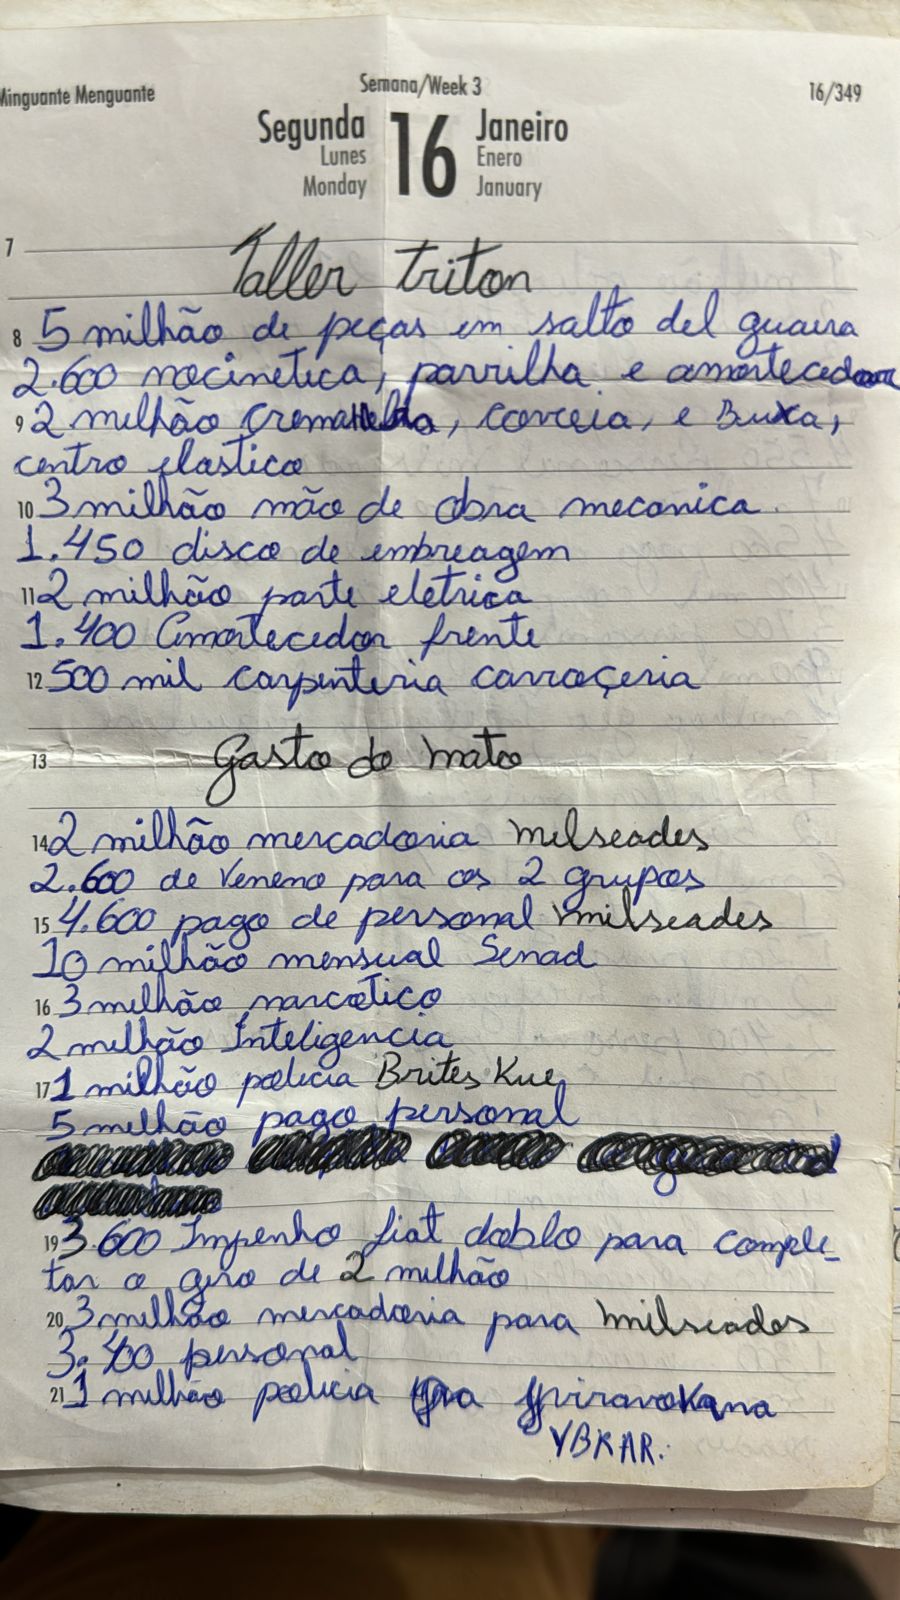 Minguante Menguante
Semana/Week 3
16/349
Segunda 16 Janeiro
Lunes Enero
Monday January
7 Taller triton
8 5 milhão de peças em salto del guaira
2.600 mocinetica, parrilha e amortecedor
9 2 milhão , correia, e Buxa,
centro elastico
10 3 milhão mão de obra mecanica.
1.450 disco de embreagem
11 2 milhão parte eletrica
1.400 Amortecedor frente
12 500 mil carpinteria carroçeria
13 Gasto do mato
14 2 milhão mercadoria milseades
2.600 de Veneno para os 2 grupos
15 4.600 pago de personal milseades
10 milhão mensual Senad
16 3 milhão narcotico
2 milhão Inteligencia
17 1 milhão policia Brites Kue
5 milhão pago personal
19 3.600 Impenho fiat doblo para comple-
tar o giro de 2 milhão
20 3 milhão mercadoria para milseades
3.400 personal
21 1 milhão policia
YBKAR.